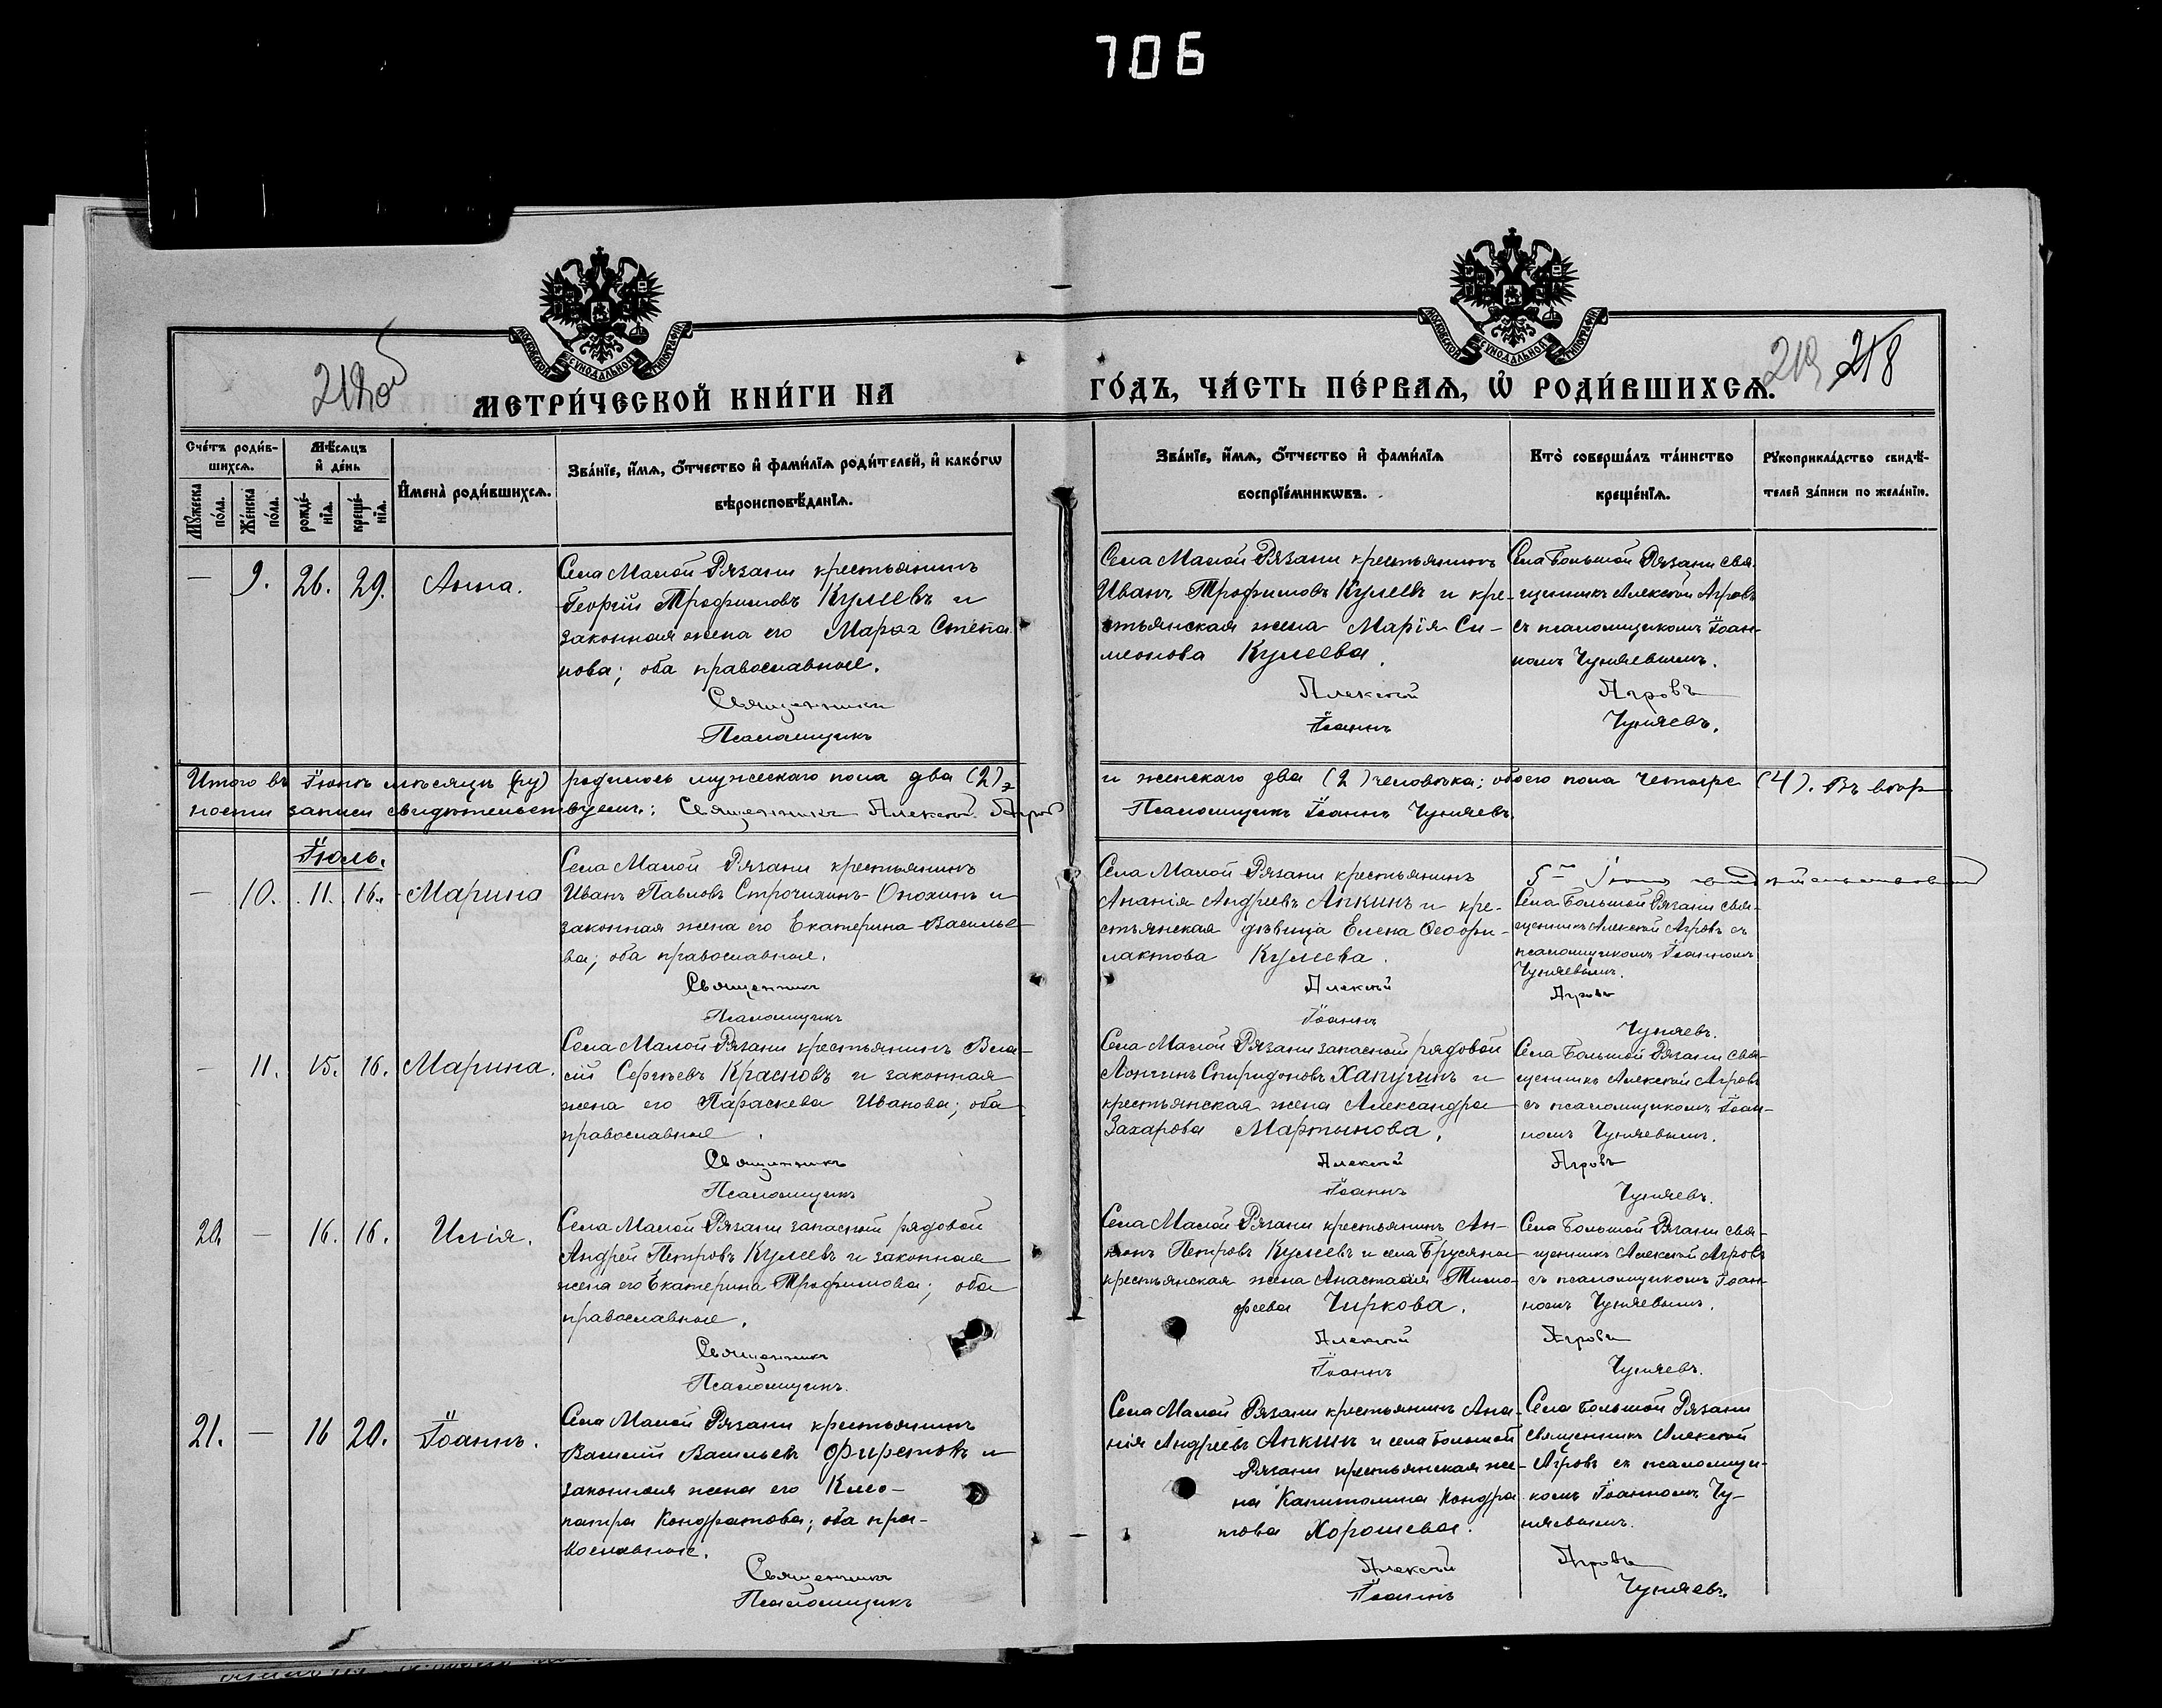 706
МОСКОВСКОЙ СѴНОДАЛЬНОЙ ТИПОГРАФІИ
МОСКОВСКОЙ СѴНОДАЛЬНОЙ ТИПОГРАФІИ
218об
МЕТРИ́ЧЕСКОЙ КНИ́ГИ НА
ГО́ДЪ, ЧА́СТЬ ПЕ́РВАѦ, Ѡ҆ РОДИ́ВШИХСѦ.
219 218
Сче́тъ роди́в-
шихсѧ.
Мѣ́сѧцъ
и҆ де́нь
И҆мена̀ роди́вшихсѧ.
Зва́нїе, и҆́мѧ, ѻ҆́тчество и҆ фамі́лїѧ роди́телей, и҆ како́гѡ
вѣроисповѣ́данїѧ.
Мꙋ́жеска
по́ла.
Же́нска
по́ла.
рожде́-
нїѧ.
креще́-
нїѧ.
Зва́нїе, и҆́мѧ, ѻ҆́тчество и҆ фамі́лїѧ
воспрїе́мникѡвъ.
Кто̀ соверша́лъ та́инство
креще́нїѧ.
Рꙋкоприкла́дство свидѣ́-
телей за́писи по жела́нїю.
— 9. 26. 29. Анна.
Села Малой Рязани крестьянинъ
Георгій Трофимовъ Кулеевъ и
законная жена его Марѳа Степа
нова; оба православные.
Священникъ
Псаломщикъ
Села Малой Рязани крестьянинъ
Иванъ Трофимовъ Кулеевъ и кре-
стьянская жена Марія Си-
меонова Кулеева.
Алексій
Іоаннъ
Села Большой Рязани свя-
щенникъ Алексій Агровъ
съ псаломщикомъ Іоан-
номъ Чуняевымъ.
Агровъ
Чуняевъ.
Итого въ Іюнѣ мѣсяцѣ родилось мужескаго пола два (2),
и женскаго два (2) человѣка; обоего пола четыре (4). Въ вѣр
ности записи свидѣтельствуемъ: Священникъ Алексій Агровъ
Псаломщикъ Іоаннъ Чуняевъ.
Іюль.
— 10. 11. 16. Марина
Села Малой Рязани крестьянинъ
Иванъ Павловъ Строчилинъ-Онохинъ и
законная жена его Екатерина Василье
ва; оба православные.
Священникъ
Псаломщикъ
Села Малой Рязани крестьянинъ
Ананія Андреевъ Апкинъ и кре-
стьянская дѣвица Елена Ѳеофи-
лактова Кулеева.
Алексій
Іоаннъ
Села Большой Рязани свя-
щенникъ Алексій Агровъ съ
псаломщикомъ Іоанномъ
Чуняевымъ.
Агровъ
Чуняевъ.
— 11. 15. 16. Марина.
Села Малой Рязани крестьянинъ Вла-
сій Сергѣевъ Красновъ и законная
жена его Параскева Иванова; оба
православные.
Священникъ
Псаломщикъ
Села Малой Рязани запасной рядовой
Лонгинъ Спиридоновъ Хапугинъ и
крестьянская жена Александра
Захарова Мартынова.
Алексій
Іоаннъ
Села Большой Рязани свя-
щенникъ Алексій Агровъ
съ псаломщикомъ Іоан-
номъ Чуняевымъ.
Агровъ
Чуняевъ.
20. — 16. 16. Илія.
Села Малой Рязани запасной рядовой
Андрей Петровъ Кулеевъ и законная
жена его Екатерина Трофимова; оба
православные.
Священникъ
Псаломщикъ.
Села Малой Рязани крестьянинъ Ан-
тонъ Петровъ Кулеевъ и села Брусяна
крестьянская жена Анастасія Тимо-
феева Чиркова.
Алексій
Іоаннъ
Села Большой Рязани свя-
щенникъ Алексій Агровъ
съ псаломщикомъ Іоан-
номъ Чуняевымъ.
Агровъ
Чуняевъ.
21. — 16 20. Іоаннъ.
Села Малой Рязани крестьянинъ
Василій Васильевъ Фирстовъ и
законная жена его Клео-
патра Кондратова; оба пра-
вославные.
Священникъ
Псаломщикъ
Села Малой Рязани крестьянинъ Ана-
нія Андреевъ Апкинъ и села Большой
Рязани крестьянская же-
на Капитолина Кондра
това Хорошева.
Алексій
Іоаннъ
Села Большой Рязани
священникъ Алексій
Агровъ съ псаломщи-
комъ Іоанномъ Чу-
няевымъ.
Агровъ
Чуняевъ.